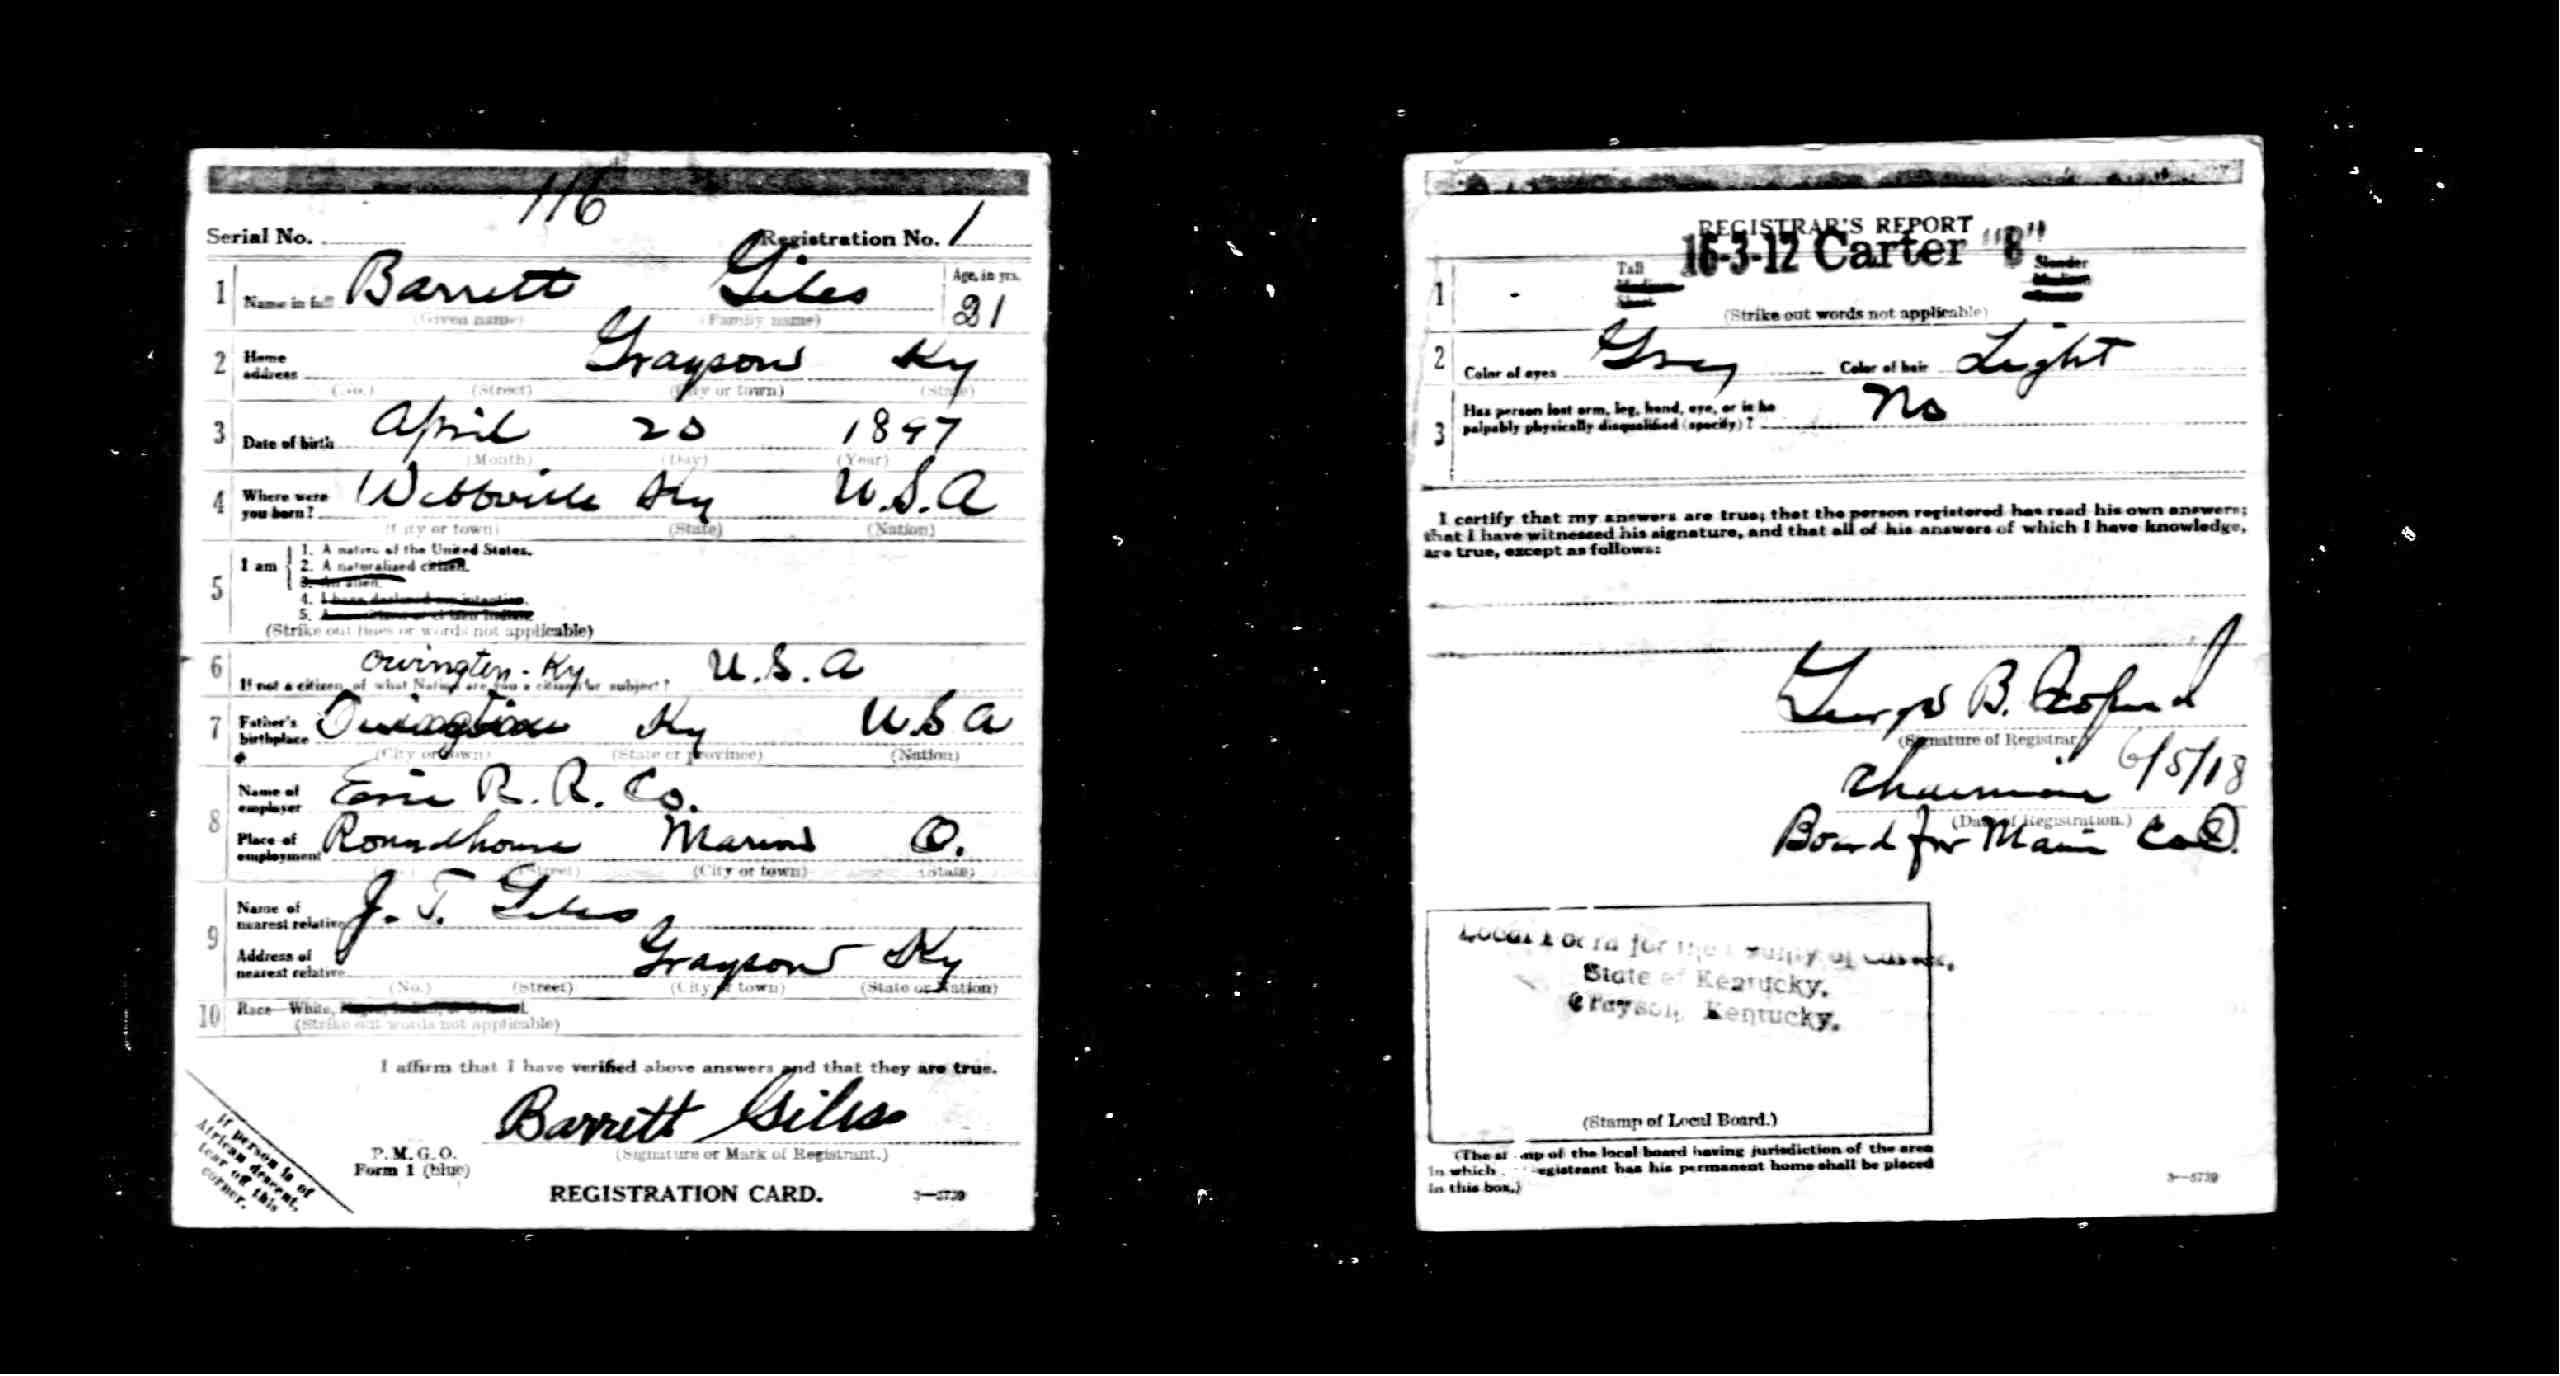 116
Serial No. Registration No. 1
1 Name in full Barrett Giles Age, in yrs. 21
(Given name) (Family name)
2 Home address Grayson Ky
(No.) (Street) (City or town) (State)
3 Date of birth April 20 1897
(Month) (Day) (Year)
4 Where were you born? Webbville Ky U.S.A
(City or town) (State) (Nation)
5 I am
1. A native of the United States.
2. A naturalized citizen.
3. An alien.
4. I have declared my intention.
5.
(Strike out lines or words not applicable)
Owington - Ky U.S.A
6 If not a citizen, of what Nation are you a citizen or subject?
7 Father's birthplace Owington Ky U S A
(City or town) (State or province) (Nation)
8 Name of employer Erie R. R. Co.
Place of employment Roundhouse Marion O.
(Street) (City or town) (State)
9 Name of nearest relative J. T. Giles
Address of nearest relative Grayson Ky
(No.) (Street) (City or town) (State or Nation)
10 Race—White,
(Strike out words not applicable)
I affirm that I have verified above answers and that they are true.
Barrett Giles
(Signature or Mark of Registrant.)
P. M. G. O.
Form 1 (blue)
REGISTRATION CARD.
3—5739
If person is of
African descent,
tear off this
corner.
REGISTRAR'S REPORT
16-3-12 Carter "B"
1 Tall Slender
Medium Medium
Short
(Strike out words not applicable)
2 Color of eyes Grey Color of hair Light
3 Has person lost arm, leg, hand, eye, or is he
palpably physically disqualified (specify)? No
I certify that my answers are true; that the person registered has read his own answers;
that I have witnessed his signature, and that all of his answers of which I have knowledge,
are true, except as follows:
George B.
(Signature of Registrar)
Chairman 6/5/18
(Date of Registration.)
Board for Marion Co O.
Local Board for the County of Carter,
State of Kentucky.
Grayson, Kentucky.
(Stamp of Local Board.)
(The stamp of the local board having jurisdiction of the area
in which registrant has his permanent home shall be placed
in this box.)
3—5739